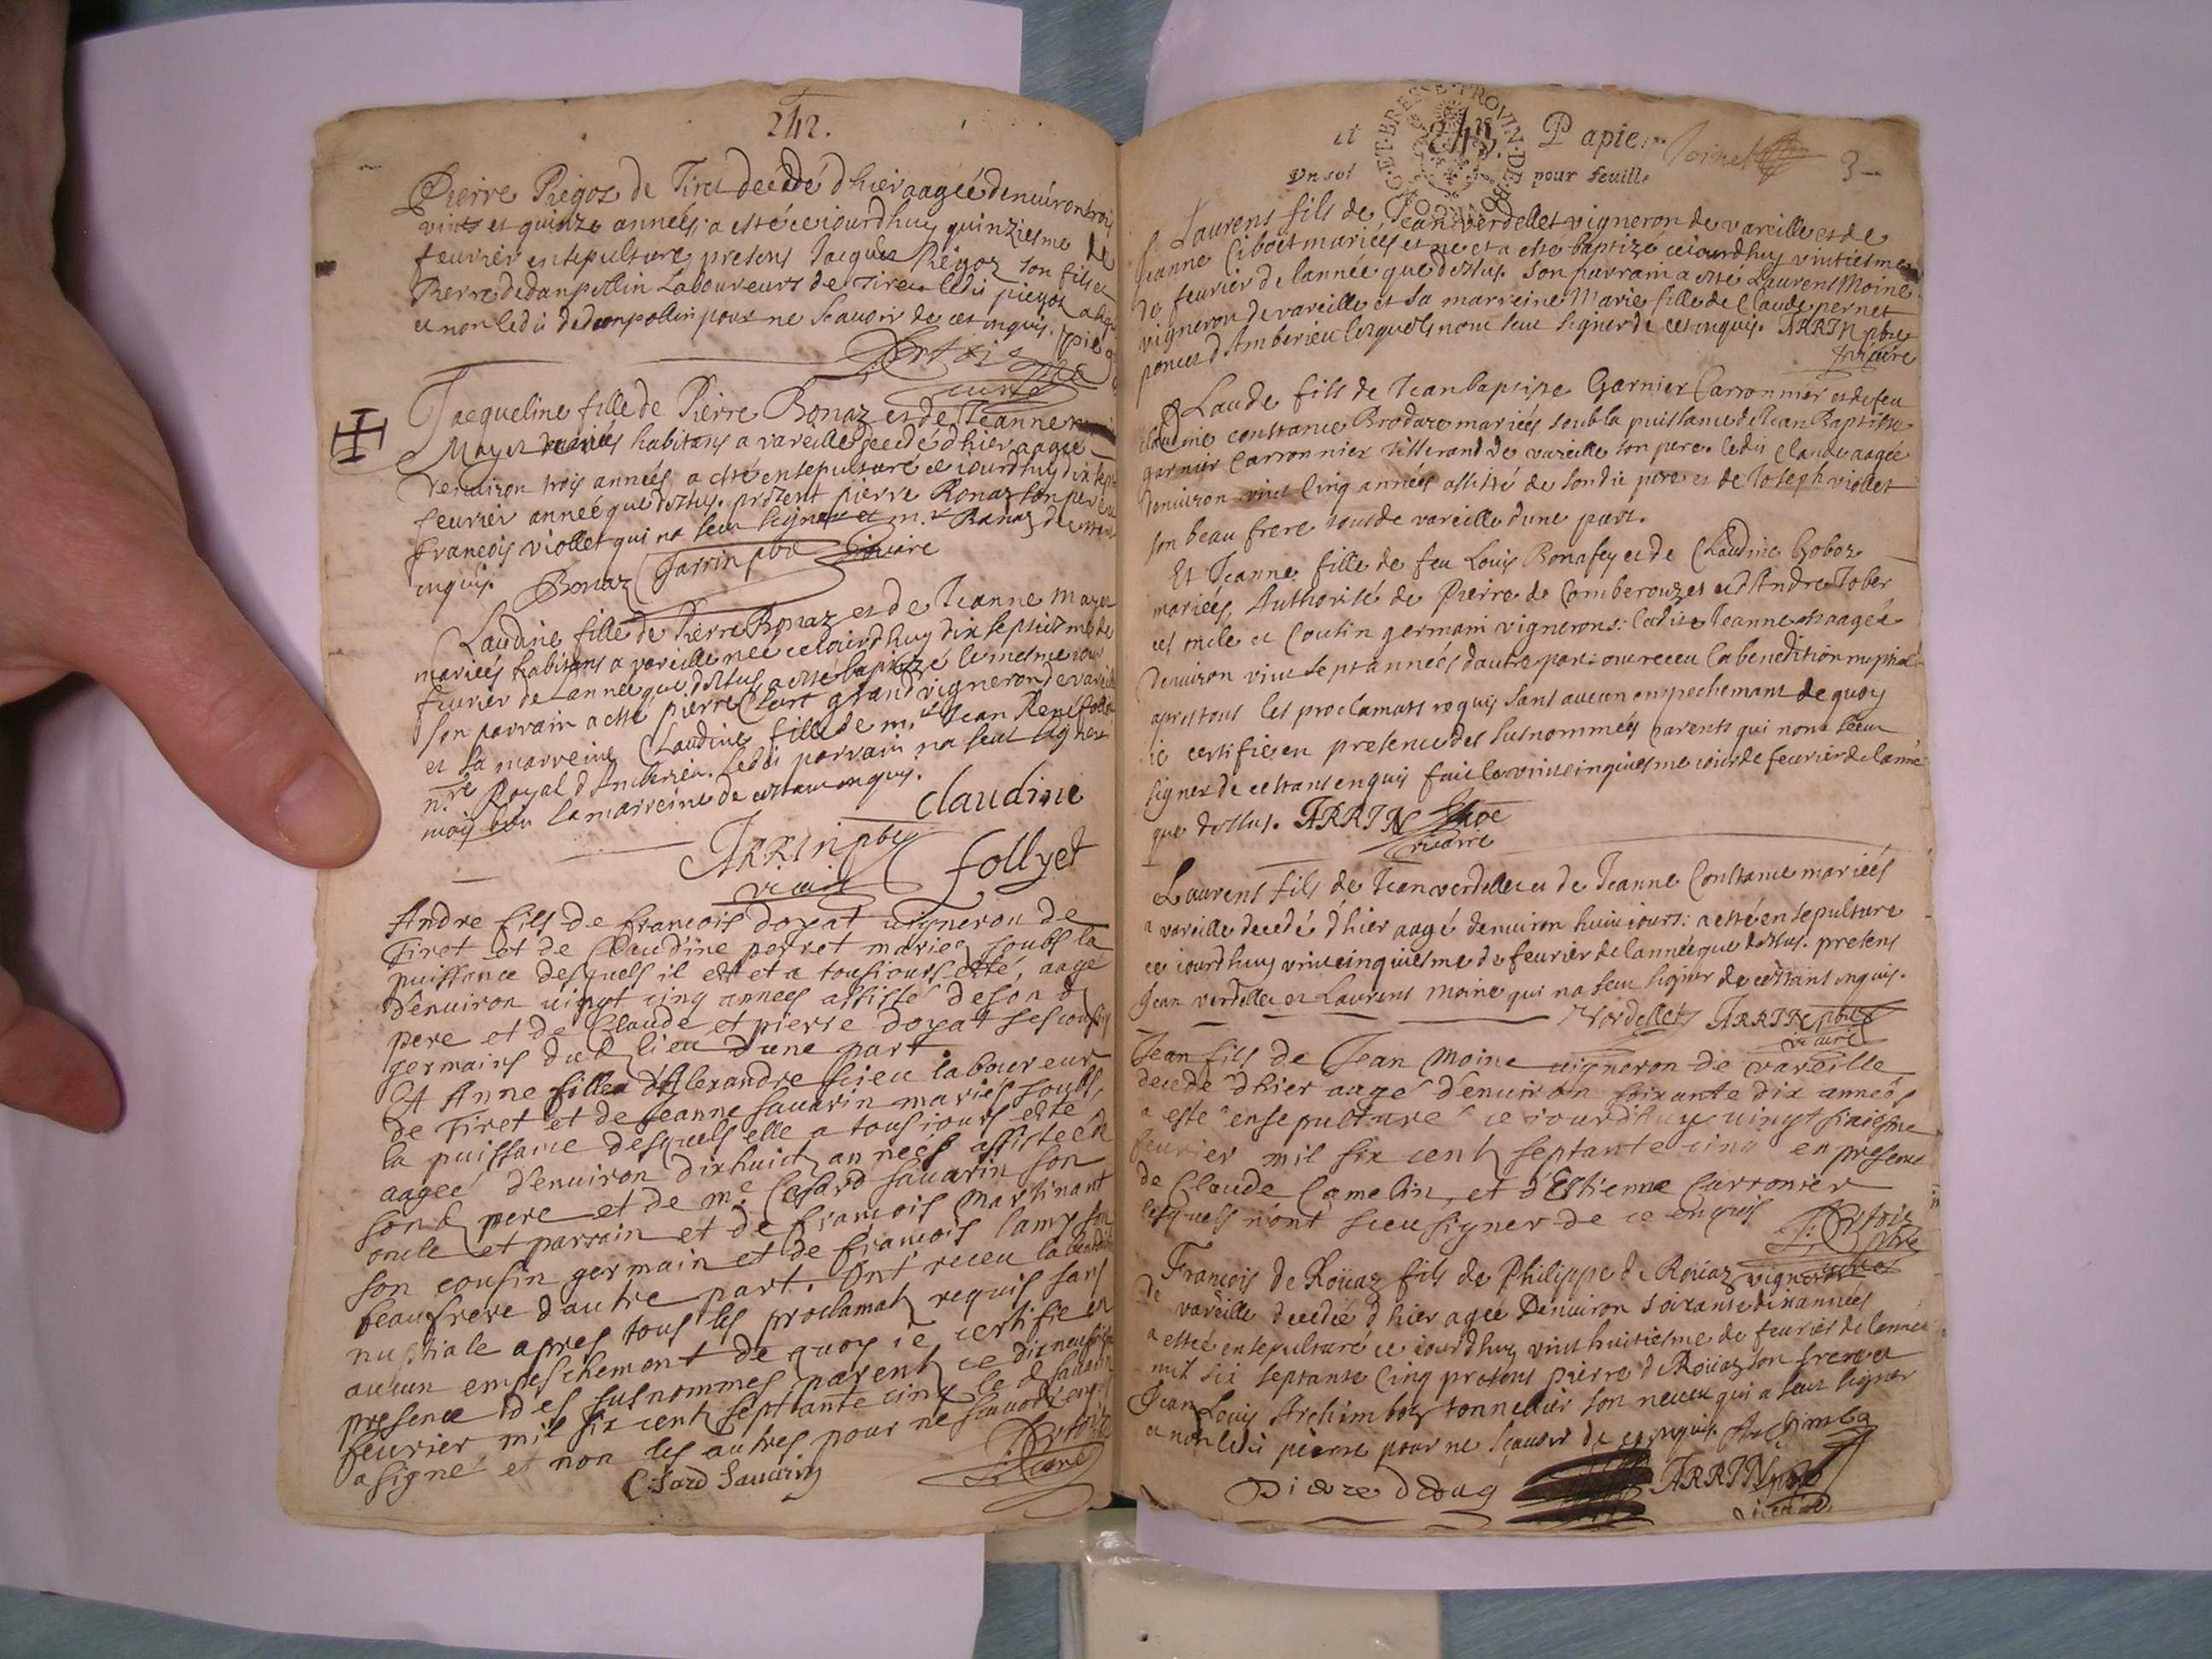 242.
Pierre Piegoz de Tiret decedé d'hier aageé denuiron trois
vints et quinze années, a esté ce iourdhuy quinziesme de
feurier ensepulturé, presens Jacques Piegoz son fils et
Pierre dedanpollin Laboureurs de Tiret ledit piegoz a signé
et non ledit dedanpollin pour ne scauoir de ce enquis.
Jacqueline fille de Pierre Bonaz et de Jeanne
Mayet mariés habitans a vareille decedé d'hier aagée
denuiron trois années a esté ensepulturé ce iourdhuy dix sept
feurier année que dessus. présent pierre Bonaz son pere et
francois viollet qui na seu signer et Bonaz de
enquis. Bonaz Jarrin pbre vicaire
Laudine fille de Pierre Bonaz et de Jeanne Mayet
mariés habitans a vareille née ce iourdhuy dix septiesme de
feurier de Lannée que dessus a esté baptizé le mesme iour
son parrain a esté pierre Clert grand vigneron de vareille
et sa marreine Claudine fille de m. Jean René follet
nre Royal d'Amberieu. Ledit parrain na seu signer
mais bien la marreine de ce enquis.
Claudine
JARRIN pbre follyet
vicaire
Andre fils de francois doyat uigneron de
Tiret et de Claudine perret mariez soubs la
puissance desquels il est et a tousiours esté, aagé
d'enuiron uingt cinq annees assisté de son d
pere et de Claude et pierre doyat ses cousins
germains dud lieu d'une part
Et Anne fille d'Alexandre sieu laboureur
de Tiret et de Jeanne sauarin mariés soubs
la puissance desquels elle a tousiours esté
aageé d'enuiron dixhuict années assistée de
sond pere et de me Cesard sauarin son
oncle et parrain et de francois Martinant
son cousin germain et de francois lamy son
beaufrere d'autre part. Ont receu la benediction
nuptiale apres tous les proclamatz requis sans
aucun empeschement de quoy ie certifie en
presence des susnommes parentz ce dixneufiesme
feurier mil six cent septante cinq le d sauarin
a signé et non les autres pour ne scauoir enquis
Cesard Sauarin
et 243. Papier Joinet 3
Vn sol pour feuille
G.ET.BRESSE.PROVIN.DE.BOVRGO
Laurens fils de Jean verdellet vigneron de vareille et de
Jeanne Ciboet mariés est né et a esté baptizé ceiourdhuy vintiesme
de feurier de lannée que dessus. Son parrain a esté Laurens Moine
vigneron de vareille et sa marreine Marie fille de Claude pernet
ponces d'Amberieu lesquels nont seu signer de ce enquis. JARRIN pbre
vicaire
Claude fils de Jean baptiste Garnier Carronnier et de feu
claudine constance Brodare mariés soub la puissance de Jean Baptiste
garnier Carronnier Tisserand de vareille son pere. ledit claude aagée
denuiron vint cinq années assisté de son dit pere et de Joseph viollet
son beau frere tous de vareille dune part.
Et Jeanne fille de feu Louis Bonafey et de Claudine Goboz
mariés, Authorisé de Pierre de Comberouzet et d'Andre Jober
ses oncle et Cousin germain vignerons: ladite Jeanne aagée
denuiron vint sept années dautre part: ont receu la benedition nuptiale
apres tous les proclamats requis sans aucun empechemant de quoy
ie certifie en presence des susnommés parents qui nont seeu
signer de ce estans enquis fait le vint cinquiesme iour de feurier de lannée
que dessus. JARRIN pbre
vicaire
Laurens fils de Jean verdellet et de Jeanne Constance mariés
a vareille decedé d'hier aagé denuiron huit iours: a esté ensepulture
ce iourdhuy vint cinquiesme de feurier de lannée que dessus. presens
Jean verdellet et Laurens moine qui na seu signer de ce estant enquis.
Verdellet JARRIN pbre
vicaire
Jean fils de Jean Moine uigneron de vareille
decedé d'hier aagé d'enuiron soixante dix années
a esté ensepulturé ce iourd'huy uingt sixiesme
feurier mil six cent septante cinq en presence
de Claude Camelin, et d'Estienne Carronier
lesquels n'ont sceu signer de ce enquis
François de Roüaz fils de Philippe de Roüaz vigneron
de vareille decedée d'hier agée Denuiron soixante dix années
a esteé ensepulturé ce iourdhuy vint huitiesme de feurier de lannée
mil six septante Cinq presens pierre de Roüaz son frere et
Jean Louis Archimboz tonnelier son neueu qui a seu signer
et non ledit pierre pour ne scauoir de ce enquis. Archimbo
JARRIN pbre
vicaire